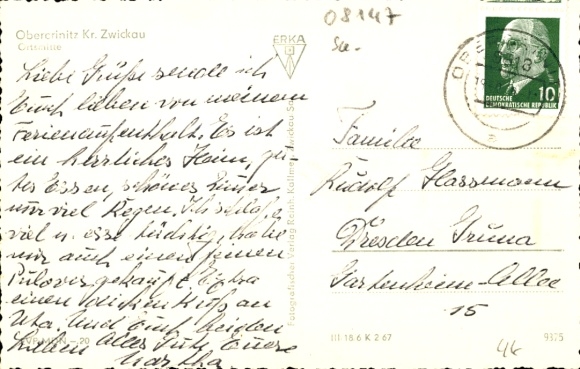 Obercrinitz Kr. Zwickau
Ortsmitte
08147
ERKA
DEUTSCHE
DEMOKRATISCHE REPUBLIK
10
Liebe Grüße sende ich
Euch lieben von meinem
Ferienaufenthalt. Es ist
ein herrliches Heim, gu-
tes Essen, schönes Zimmer
nur viel Regen. Ich schlafe
viel u. esse tüchtig, habe
mir auch einen feinen
Pulover gekauft. Extra
einen dicken Kuß an
Uta. Und Euch beiden
Lieben alles Gute Eure
Martha
Fotografischer Verlag Reinh. Kallmer, Zwickau
Familie
Rudolf Glassmann
Dresden Gruna
Gartenheim-Allee
15
III 18 6 K 2 67
9375